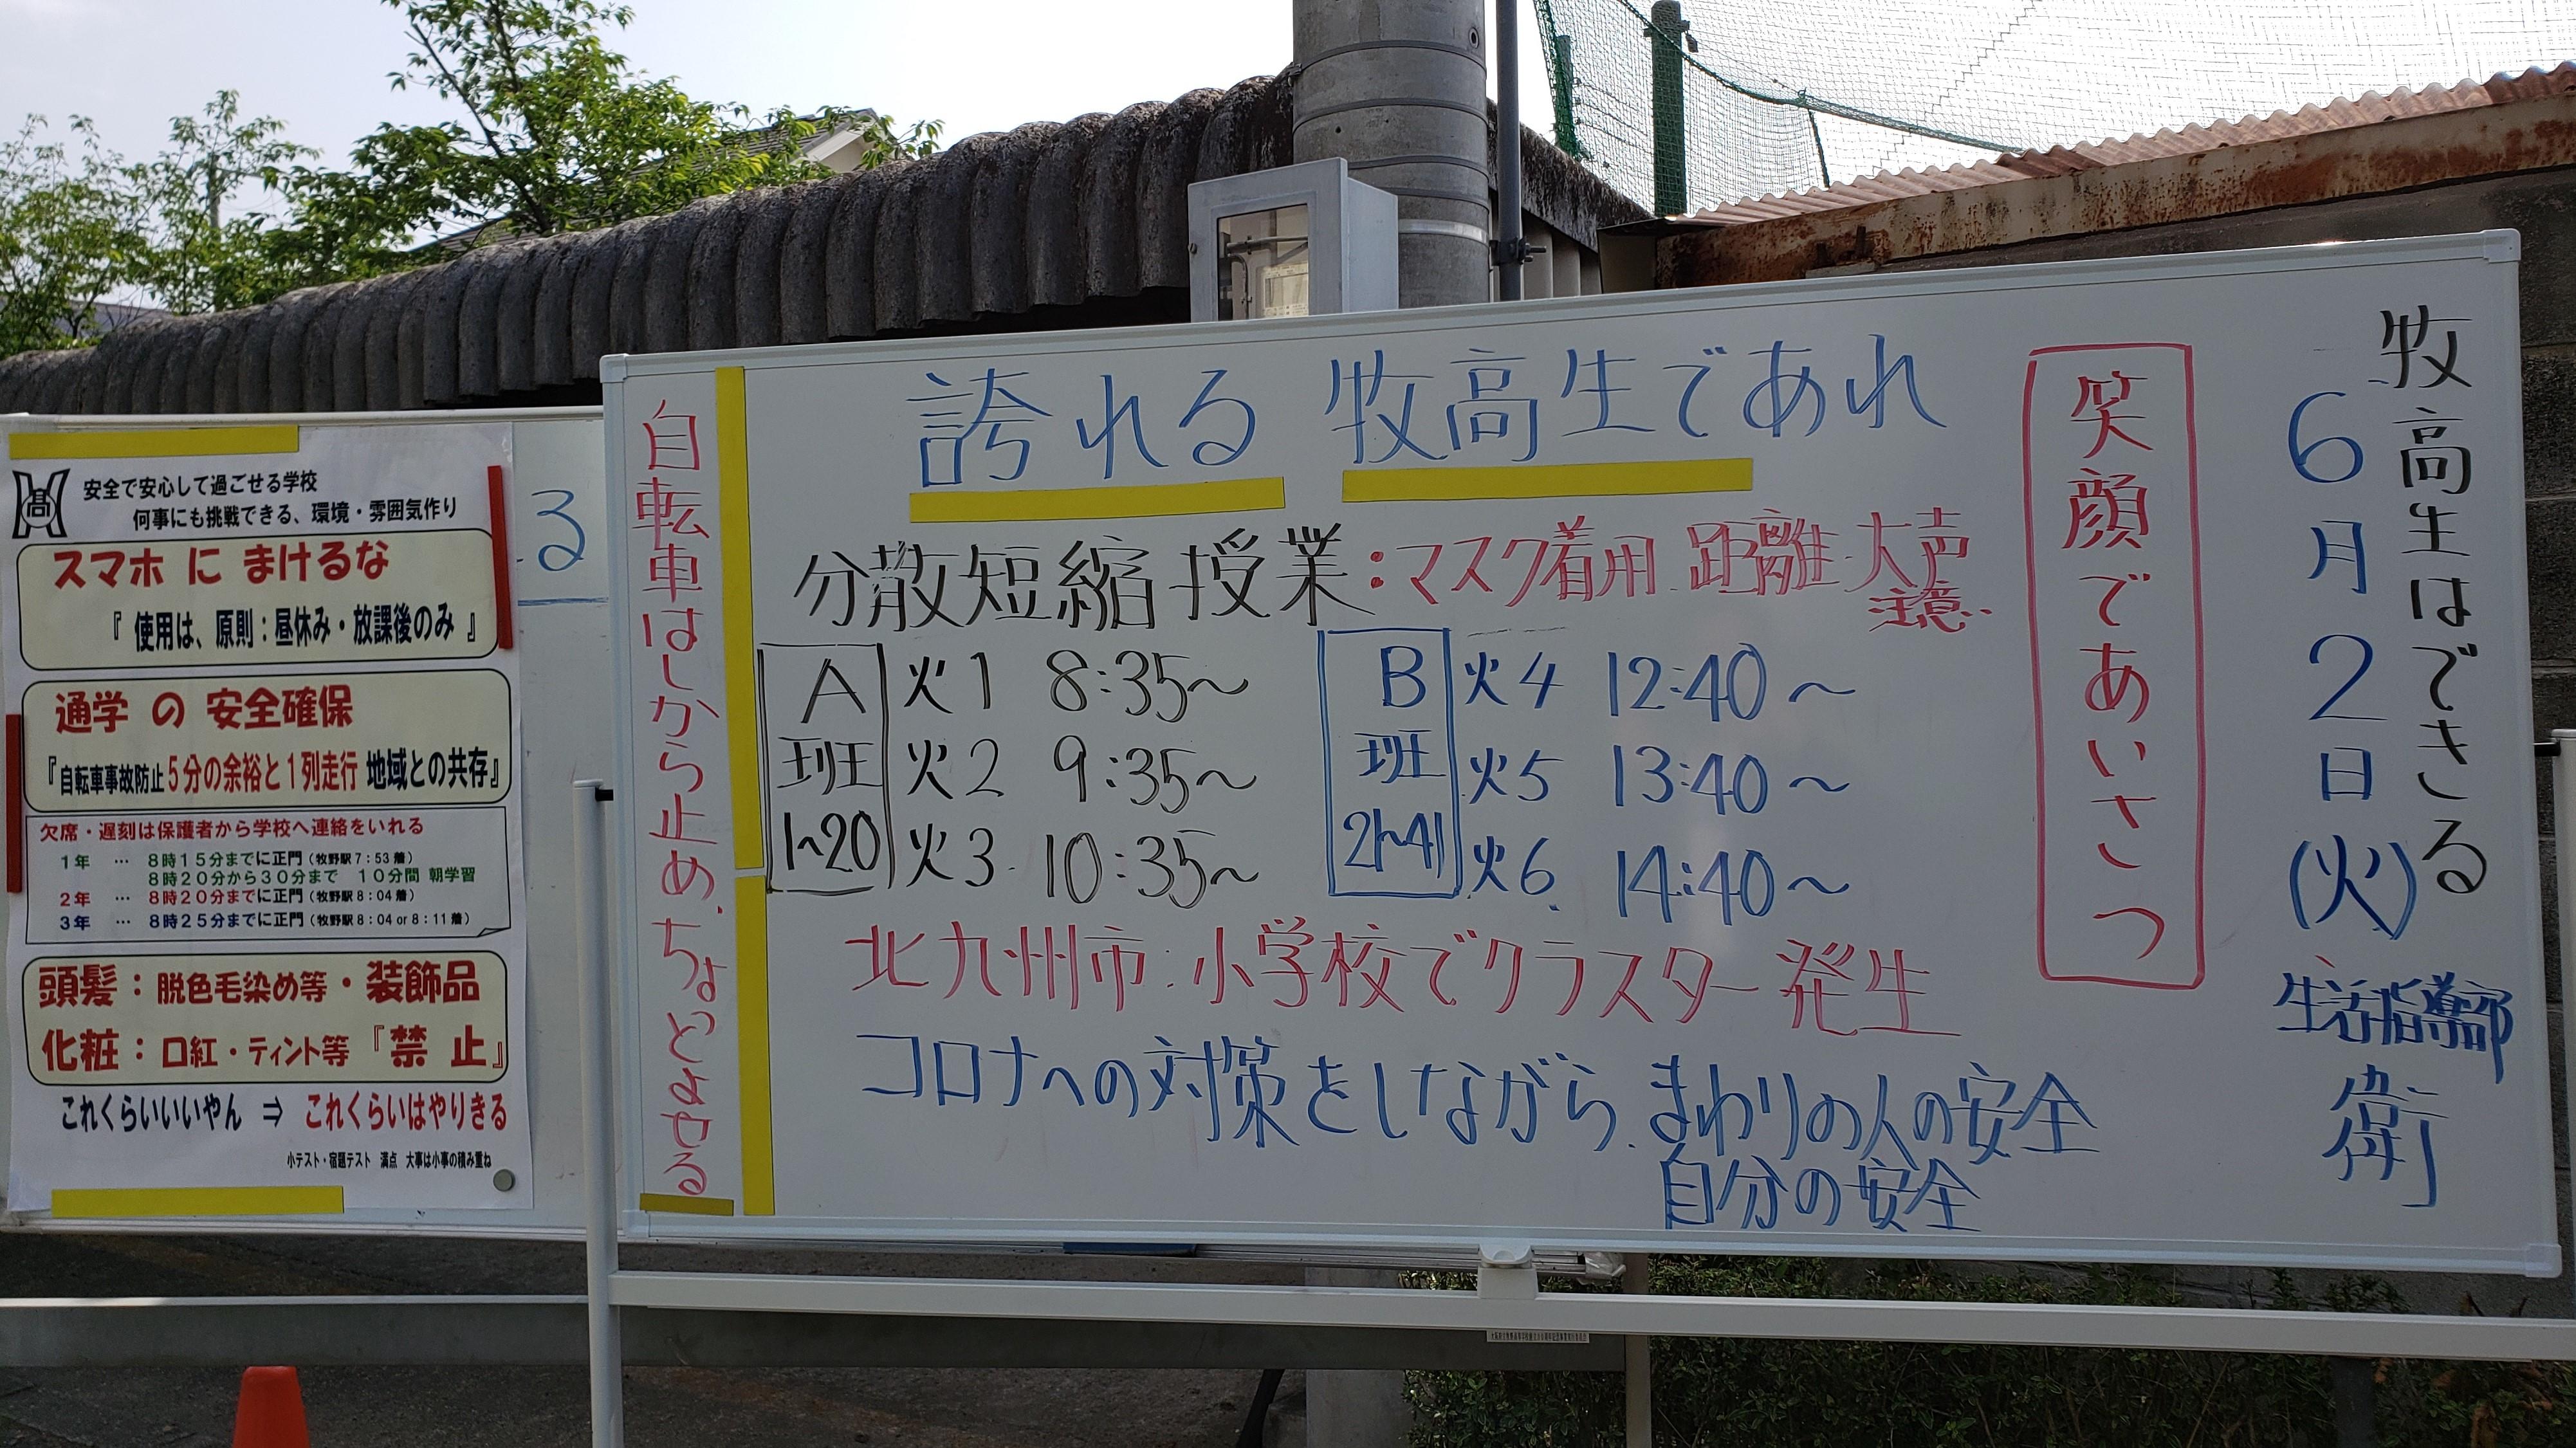 安全で安心して過ごせる学校
何事にも挑戦できる、環境・雰囲気作り
スマホ に まけるな
『 使用は、原則:昼休み・放課後のみ 』
通学 の 安全確保
『自転車事故防止5分の余裕と1列走行 地域との共存』
欠席・遅刻は保護者から学校へ連絡をいれる
1年 … 8時15分までに正門(牧野駅7:53着)
8時20分から30分まで 10分間 朝学習
2年 … 8時20分までに正門(牧野駅8:04着)
3年 … 8時25分までに正門(牧野駅8:04 or 8:11着)
頭髪:脱色毛染め等・装飾品
化粧:口紅・ティント等『禁 止』
これくらいいいやん ⇒ これくらいはやりきる
小テスト・宿題テスト 満点 大事は小事の積み重ね
る
牧高生はできる
6月2日(火)
生活指導部 衛
笑顔であいさつ
誇れる 牧高生であれ
分散短縮授業:マスク着用 距離 大声注意
A班 1~20
火1 8:35~
火2 9:35~
火3 10:35~
B班 21~41
火4 12:40~
火5 13:40~
火6 14:40~
北九州市 小学校でクラスター発生
コロナへの対策をしながら まわりの人の安全
自分の安全
自転車はしから止め、ちょいとよせる